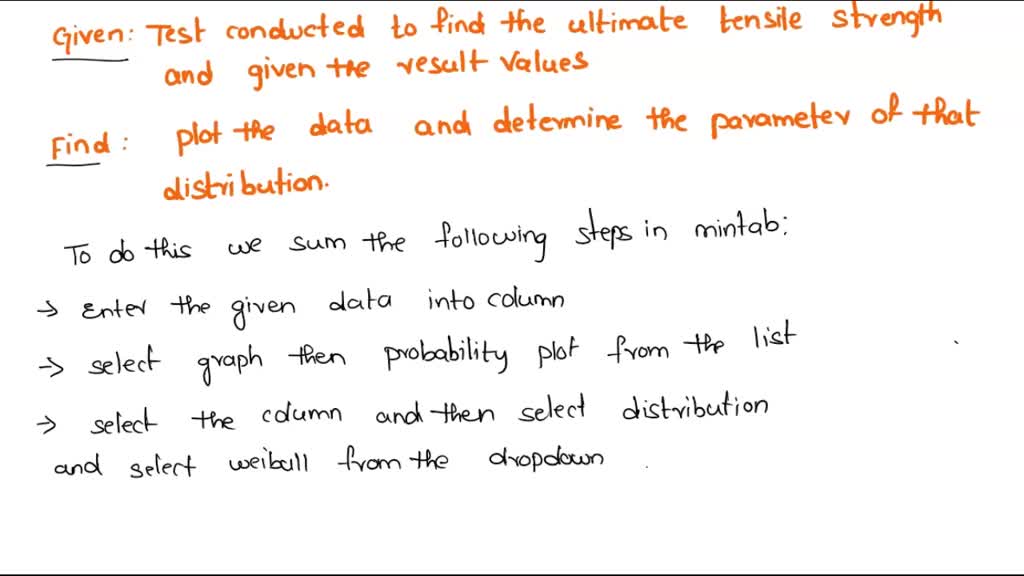 Given: Test conducted to find the ultimate tensile strength
and given the result values
Find: plot the data and determine the parameter of that
distribution.
To do this we sum the following steps in mintab:
→ Enter the given data into column
→ select graph then probability plot from the list
→ select the column and then select distribution
and select weibull from the dropdown